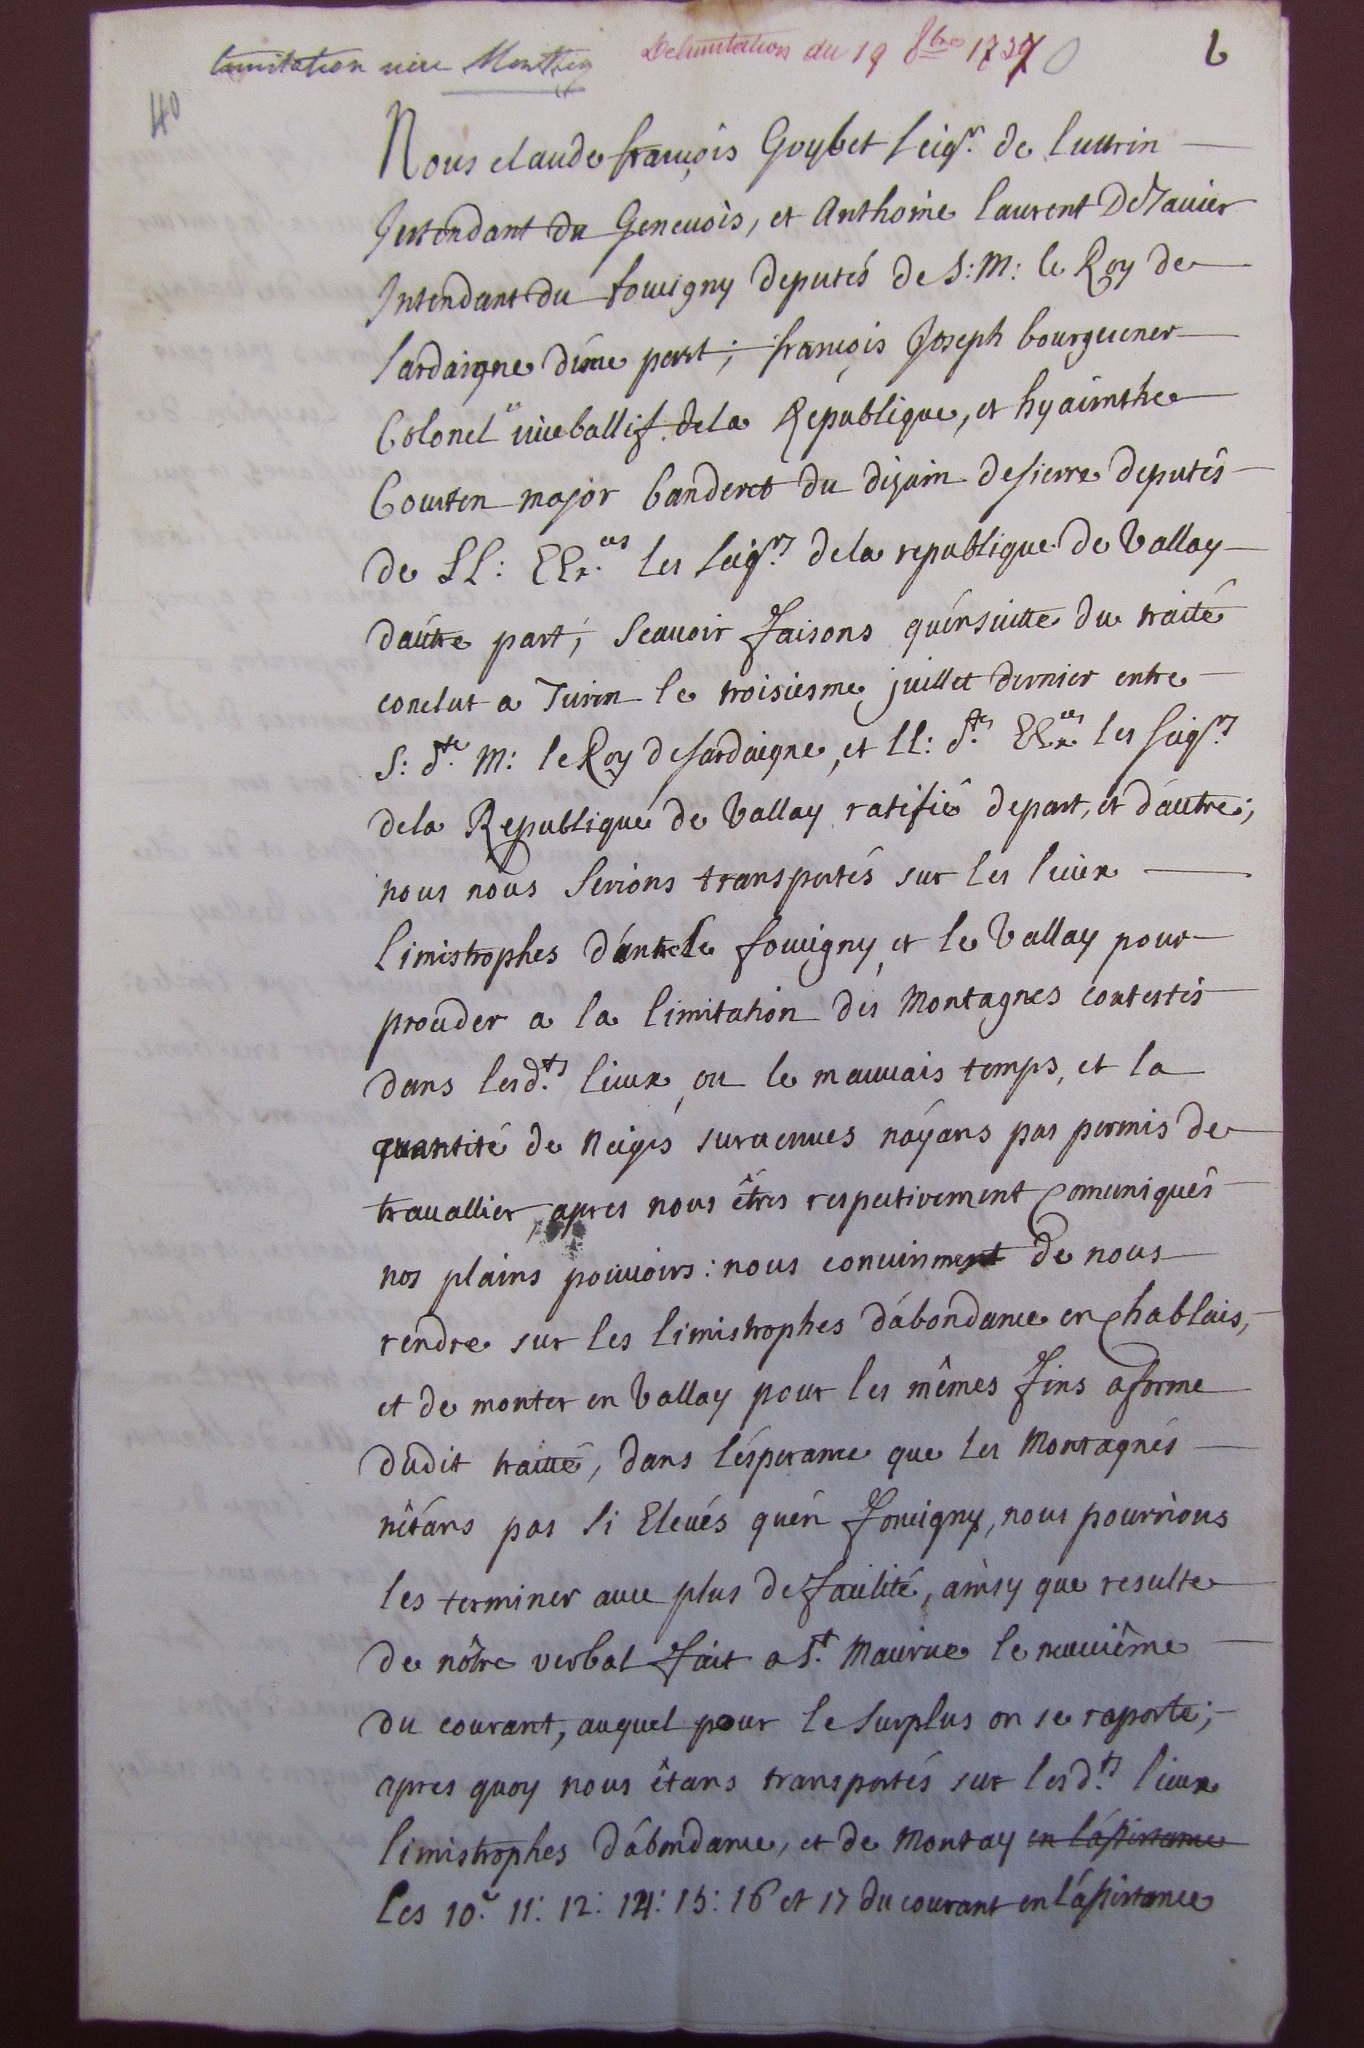 Limitation vièze Monthey
Delimitation du 19 8bre 1737
6
40
Nous claude françois Guybet seigr. de lutrin
Intendant du Geneuois, et Anthoine laurent Dejauier
Intendant du foucigny deputés de S: M: le Roy de
sardaigne d'úne part; françois Joseph bourguener
Colonel viceballif dela Republique, et hyacinthe
Courten major banderet du dizain desierre deputés
de LL: EExces les seigrs dela republique de Vallay
daútre part; Scauoir faisons qu'énsuitte du traité
conclut a Turin le troisiesme juillet dernier entre
S: dte M: le Roy desardaigne, et LL: dtes EExces les seigrs
dela Republique de Vallay ratifié depart, et d'áutre;
nous nous Serions transportés sur les lieux
limistrophes d'éntrele foucigny, et le Vallay pour
proceder a la limitation des Montagnes contestés
dans lesdts lieux, ou le mauuais temps, et la
quantité de neiges suruenues n'áyans pas permis de
trauallier, apres nous êtres respectiuement Comuniqués
nos plains pouuoirs: nous conuinment de nous
rendre sur les limistrophes d'ábondance en Chablais,
et de monter en Vallay pour les mêmes fins aforme
dudit traitté, dans l'ésperance que les Montagnes
n'étáns pas si Eleués qu'én foucigny, nous pourrious
les terminer auec plus de facilité, ainsy que resulte
de nôtre verbal fait a St. Maurice le neuuième
du courant, auquel pour le surplus on se raporte;
apres quoy nous êtans transportés sur lesdts lieux
limistrophes d'ábondance, et de Montay en l'ássistance
Les 10: 11: 12: 14: 15: 16 et 17 du courant en l'ássistance